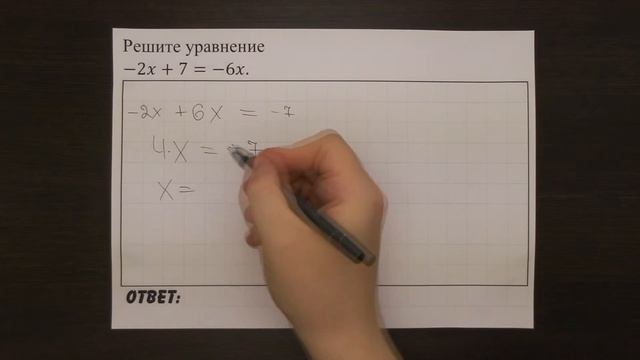 Решите уравнение
−2x + 7 = −6x.
-2x + 6x = -7
4·x = -7
x =
ОТВЕТ: